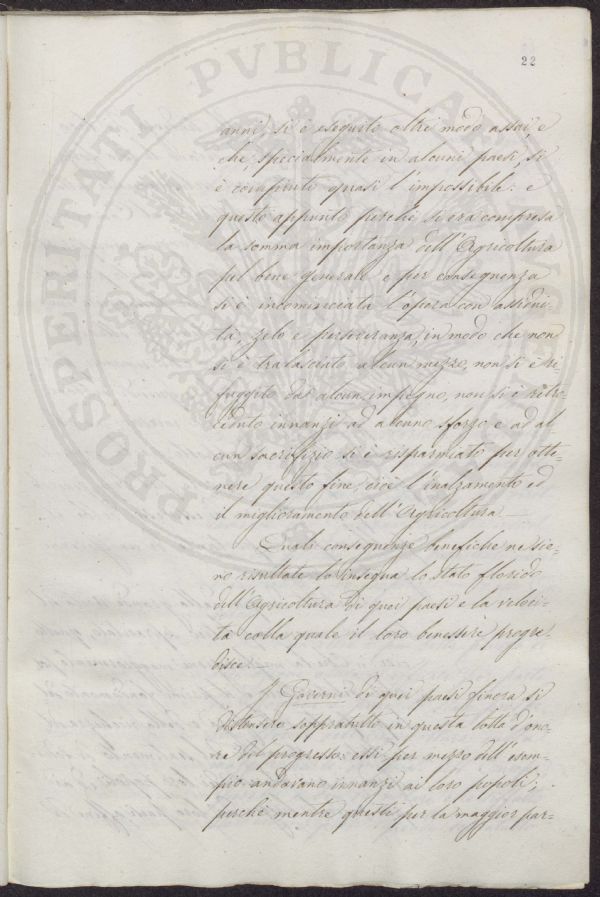 22
anni, si è eseguito oltre modo assai, e
che, specialmente in alcuni paesi, si
è compiuto quasi l'impossibile: e
questo appunto perchè si era compresa
la somma importanza dell'Agricoltura
pel bene generale e per conseguenza
si è incominciata l'opera con assidui-
tà, zelo e perseveranza, in modo che non
si è tralasciato alcun mezzo, non si è ri
fuggito da alcun impegno, non si è retro
ceduto innanzi ad alcuno sforzo e ad al
cun sacrifizio si è risparmiato per otte-
nere questo fine, cioè l'inalzamento ed
il miglioramento dell'Agricoltura
Quali conseguenze benefiche ne sie-
no risultate lo insegna lo stato florido
dell'Agricoltura di quei paesi e la veloci-
tà colla quale il loro benessere progre-
disce.
I Governi di quei paesi finora si
distinsero soppratutto in questa lotta d'ono-
re del progresso: essi per mezzo dell'esem-
pio andavano innanzi ai loro popoli;
perchè mentre questi per la maggior par-
PROSPERITATI PVBLICAE